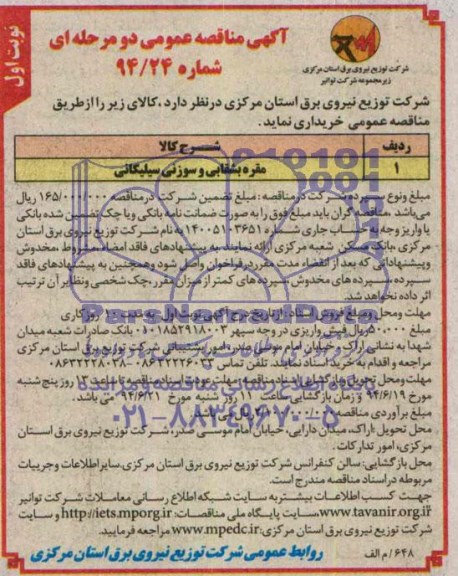 نوبت اول
آگهی مناقصه عمومی دو مرحله ای
شماره ۹۴/۲۴
شرکت توزیع نیروی برق استان مرکزی
زیرمجموعه شرکت توانیر
شرکت توزیع نیروی برق استان مرکزی درنظر دارد ،کالای زیر را ازطریق
مناقصه عمومی خریداری نماید.
ردیف شرح کالا
۱ مقره بشقابی و سوزنی سیلیکاتی
مبلغ ونوع سپرده شرکت درمناقصه : مبلغ تضمین شرکت درمناقصه ۱۶۵/۰۰۰/۰۰۰ ریال
می‌باشد ،مناقصه گران باید مبلغ فوق را به صورت ضمانت نامه بانکی ویا چک تضمین شده بانکی
یا واریز وجه به حساب جاری شماره ۱۴۰۰۵۱۰۳۶۵۱ به نام شرکت توزیع نیروی برق استان
مرکزی ،بانک مسکن شعبه مرکزی ارائه نمایند، به پیشنهادهای فاقد امضاء،مشروط ،مخدوش
وپیشنهاداتی که بعد از انقضاء مدت مقرردرفراخوان واصل شود وهمچنین به پیشنهادهای فاقد
سپرده ،سپرده های مخدوش ،سپرده های کمتر از میزان مقرر،چک شخصی ونظایر آن ترتیب
اثر داده نخواهد شد.
مهلت ومحل ومبلغ فروش اسناد : از تاریخ درج آگهی نوبت اول به مدت روز کاری
مبلغ ۵۰۰/۰۰۰ ریال فیش واریزی در وجه سپهر ۰۱۰۱۸۵۲۹۱۸۰۰۳ بانک صادرات شعبه میدان
شهدا به نشانی اراک ،خیابان امام موسی صدر، امور پشتیبانی شرکت توزیع برق استان مرکزی
مراجعه و اقدام به خرید اسناد نمایند. تلفن تماس ۰۸۶۳۲۲۲۶۰۰۳-۰۸۶۳۲۲۲۸۰۳۸
مهلت ومحل تحویل وبازگشایی اسناد مناقصه: مهلت تحویل اسناد مناقصه تا ساعت روز پنج شنبه
مورخ ۹۴/۶/۱۹ و زمان بازگشایی ساعت ۱۱ روز شنبه مورخ ۹۴/۶/۲۱ می باشد.
مبلغ برآوردی مناقصه:
محل تحویل :اراک، میدان دارایی، خیابان امام موسی صدر، شرکت توزیع نیروی برق استان
مرکزی، امور تدارکات.
محل بازگشایی: سالن کنفرانس شرکت توزیع نیروی برق استان مرکزی.سایراطلاعات وجزییات
مربوطه دراسناد مناقصه مندرج است.
جهت کسب اطلاعات بیشتربه سایت شبکه اطلاع رسانی معاملات شرکت توانیر
www.tavanir.org.ir،سایت پایگاه ملی مناقصات: http://iets.mporg.ir و سایت
شرکت توزیع نیروی برق استان مرکزی:www.mpedc.ir مراجعه فرمایید.
روابط عمومی شرکت توزیع نیروی برق استان مرکزی
۶۴۸/م الف
۰۲۱-۸۸۳۴۹۶۷۰-۵